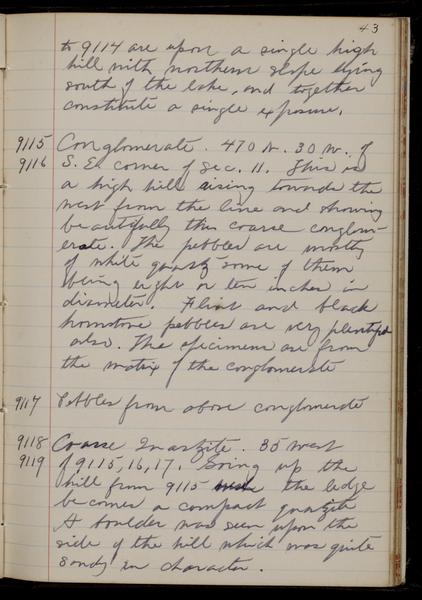 43
to 9114 are upon a single high
hill with northern slope lying
south of the lake, and together
constitute a single exposure.
9115 Conglomerate. 470 N. 30 W. of
9116 S.E. corner of Sec. 11. This is
a high hill rising towards the
west from the line and showing
beautifully this coarse conglom-
erate. The pebbles are mostly
of white quartz some of them
being eight or ten inches in
diameter. Flint and black
hornstone pebbles are very plentiful
also. The specimens are from
the matrix of the conglomerate
9117 Pebbles from above conglomerate
9118 Coarse Quartzite. 35 west
9119 of 9115, 16, 17. Going up the
hill from 9115 the ledge
becomes a compact quartzite
A boulder was seen upon the
side of the hill which was quite
sandy in character.